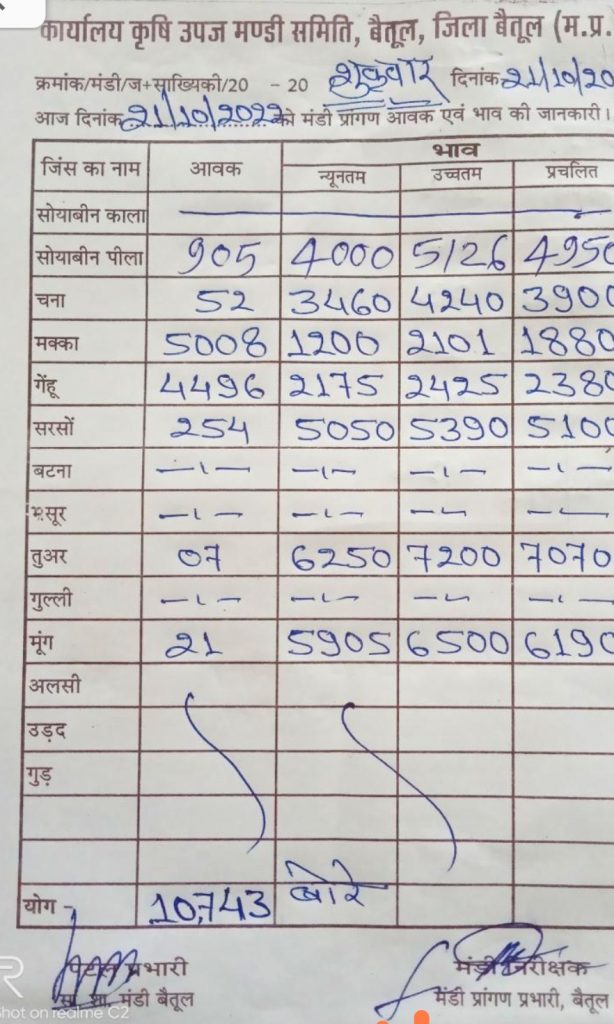 कार्यालय कृषि उपज मण्डी समिति, बैतूल, जिला बैतूल (म.प्र.
क्रमांक/मंडी/ज+सांख्यिकी/20 - 20 शुक्रवार दिनांक 21/10/20
आज दिनांक 21/10/2022 को मंडी प्रांगण आवक एवं भाव की जानकारी।
जिंस का नाम आवक भाव
न्यूनतम उच्चतम प्रचलित
सोयाबीन काला
सोयाबीन पीला 905 4000 5126 4950
चना 52 3460 4240 3900
मक्का 5008 1200 2101 1880
गेंहू 4496 2175 2425 2380
सरसों 254 5050 5390 5100
बटना —ı— —ı— —ı— —ı—
मसूर —ı— —ı— —ı— —ı—
तुअर 07 6250 7200 7070
गुल्ली —ı— —ı— —ı— —ı—
मूंग 21 5905 6500 6190
अलसी
उड़द
गुड़
योग - 10,743 बोरे
प्रभारी मंडी निरीक्षक
मंडी बैतूल मंडी प्रांगण प्रभारी, बैतूल
Shot on realme C2